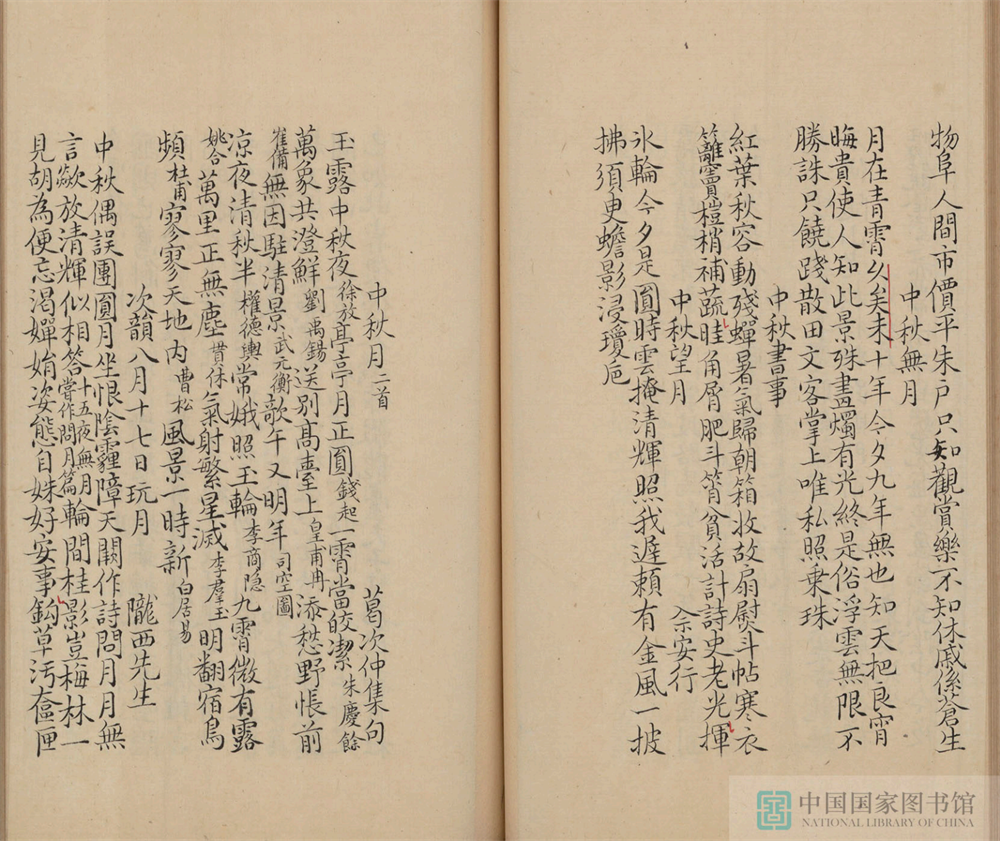 物阜人間市價平朱户只知觀賞樂不知休戚係蒼生
中秋無月
月在青霄久矣未十年今夕九年無也知天把良宵
晦貴使人知此景殊畫燭有光終是俗浮雲無限不
勝誅只饒踐散田文客掌上唯私照乗珠
中秋書事
紅葉秋容動殘蟬暑氣歸朝箱收故扇熨斗帖寒衣
籬竇榰梢補蔬畦角屑肥斗筲貧活計詩史老光揮
中秋望月
余安行
氷輪今夕是圓時雲掩清輝照我遲頼有金風一披
拂須臾蟾影浸瓊巵
中秋月二首
葛次仲集句
玉露中秋夜徐放亭亭月正圓錢起一霄當皎潔朱慶餘
萬象共澄鮮劉禹錫送別髙臺上皇甫冉添愁野帳前
崔備無因駐清景武元衡欹午又明年司空圖
凉夜清秋半權德輿常娥照玉輪李商隐九霄微有露
姚合萬里正無塵貫休氣射繁星滅李羣玉明翻宿鳥
頻杜甫寥寥天地内曹松風景一時新白居易
次韻八月十七日玩月
隴西先生
中秋偶誤團圓月坐恨陰霾障天闕作詩問月月無
言歘放清輝似相答十五夜無月嘗作問月篇輪間桂影豈梅林一
見胡為便忘渴嬋娟姿態自姝好安事鈎草汚奩匣
中国国家图书馆
NATIONAL LIBRARY OF CHINA